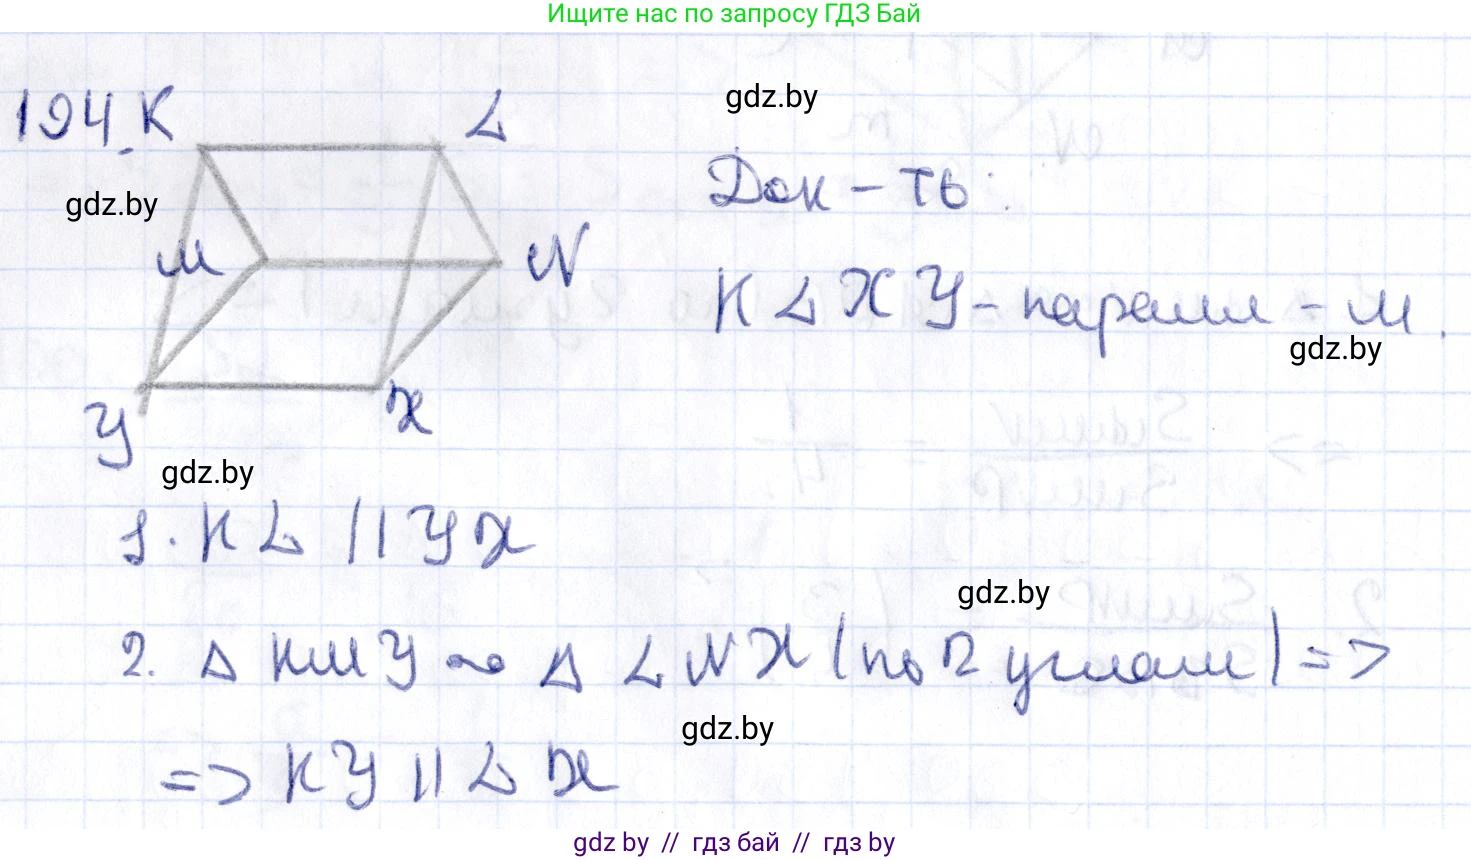 Ищите нас по запросу ГДЗ Бай
194. K L
gdz.by
gdz.by
Док-ть:
M N
KLXY - паралл-м.
gdz.by
Y X
gdz.by
1. KL || YX
gdz.by
2. Δ KMY ~ Δ LNX (по 2 углам) =>
gdz.by
=> KY || LX
gdz by // гдз бай // гдз by